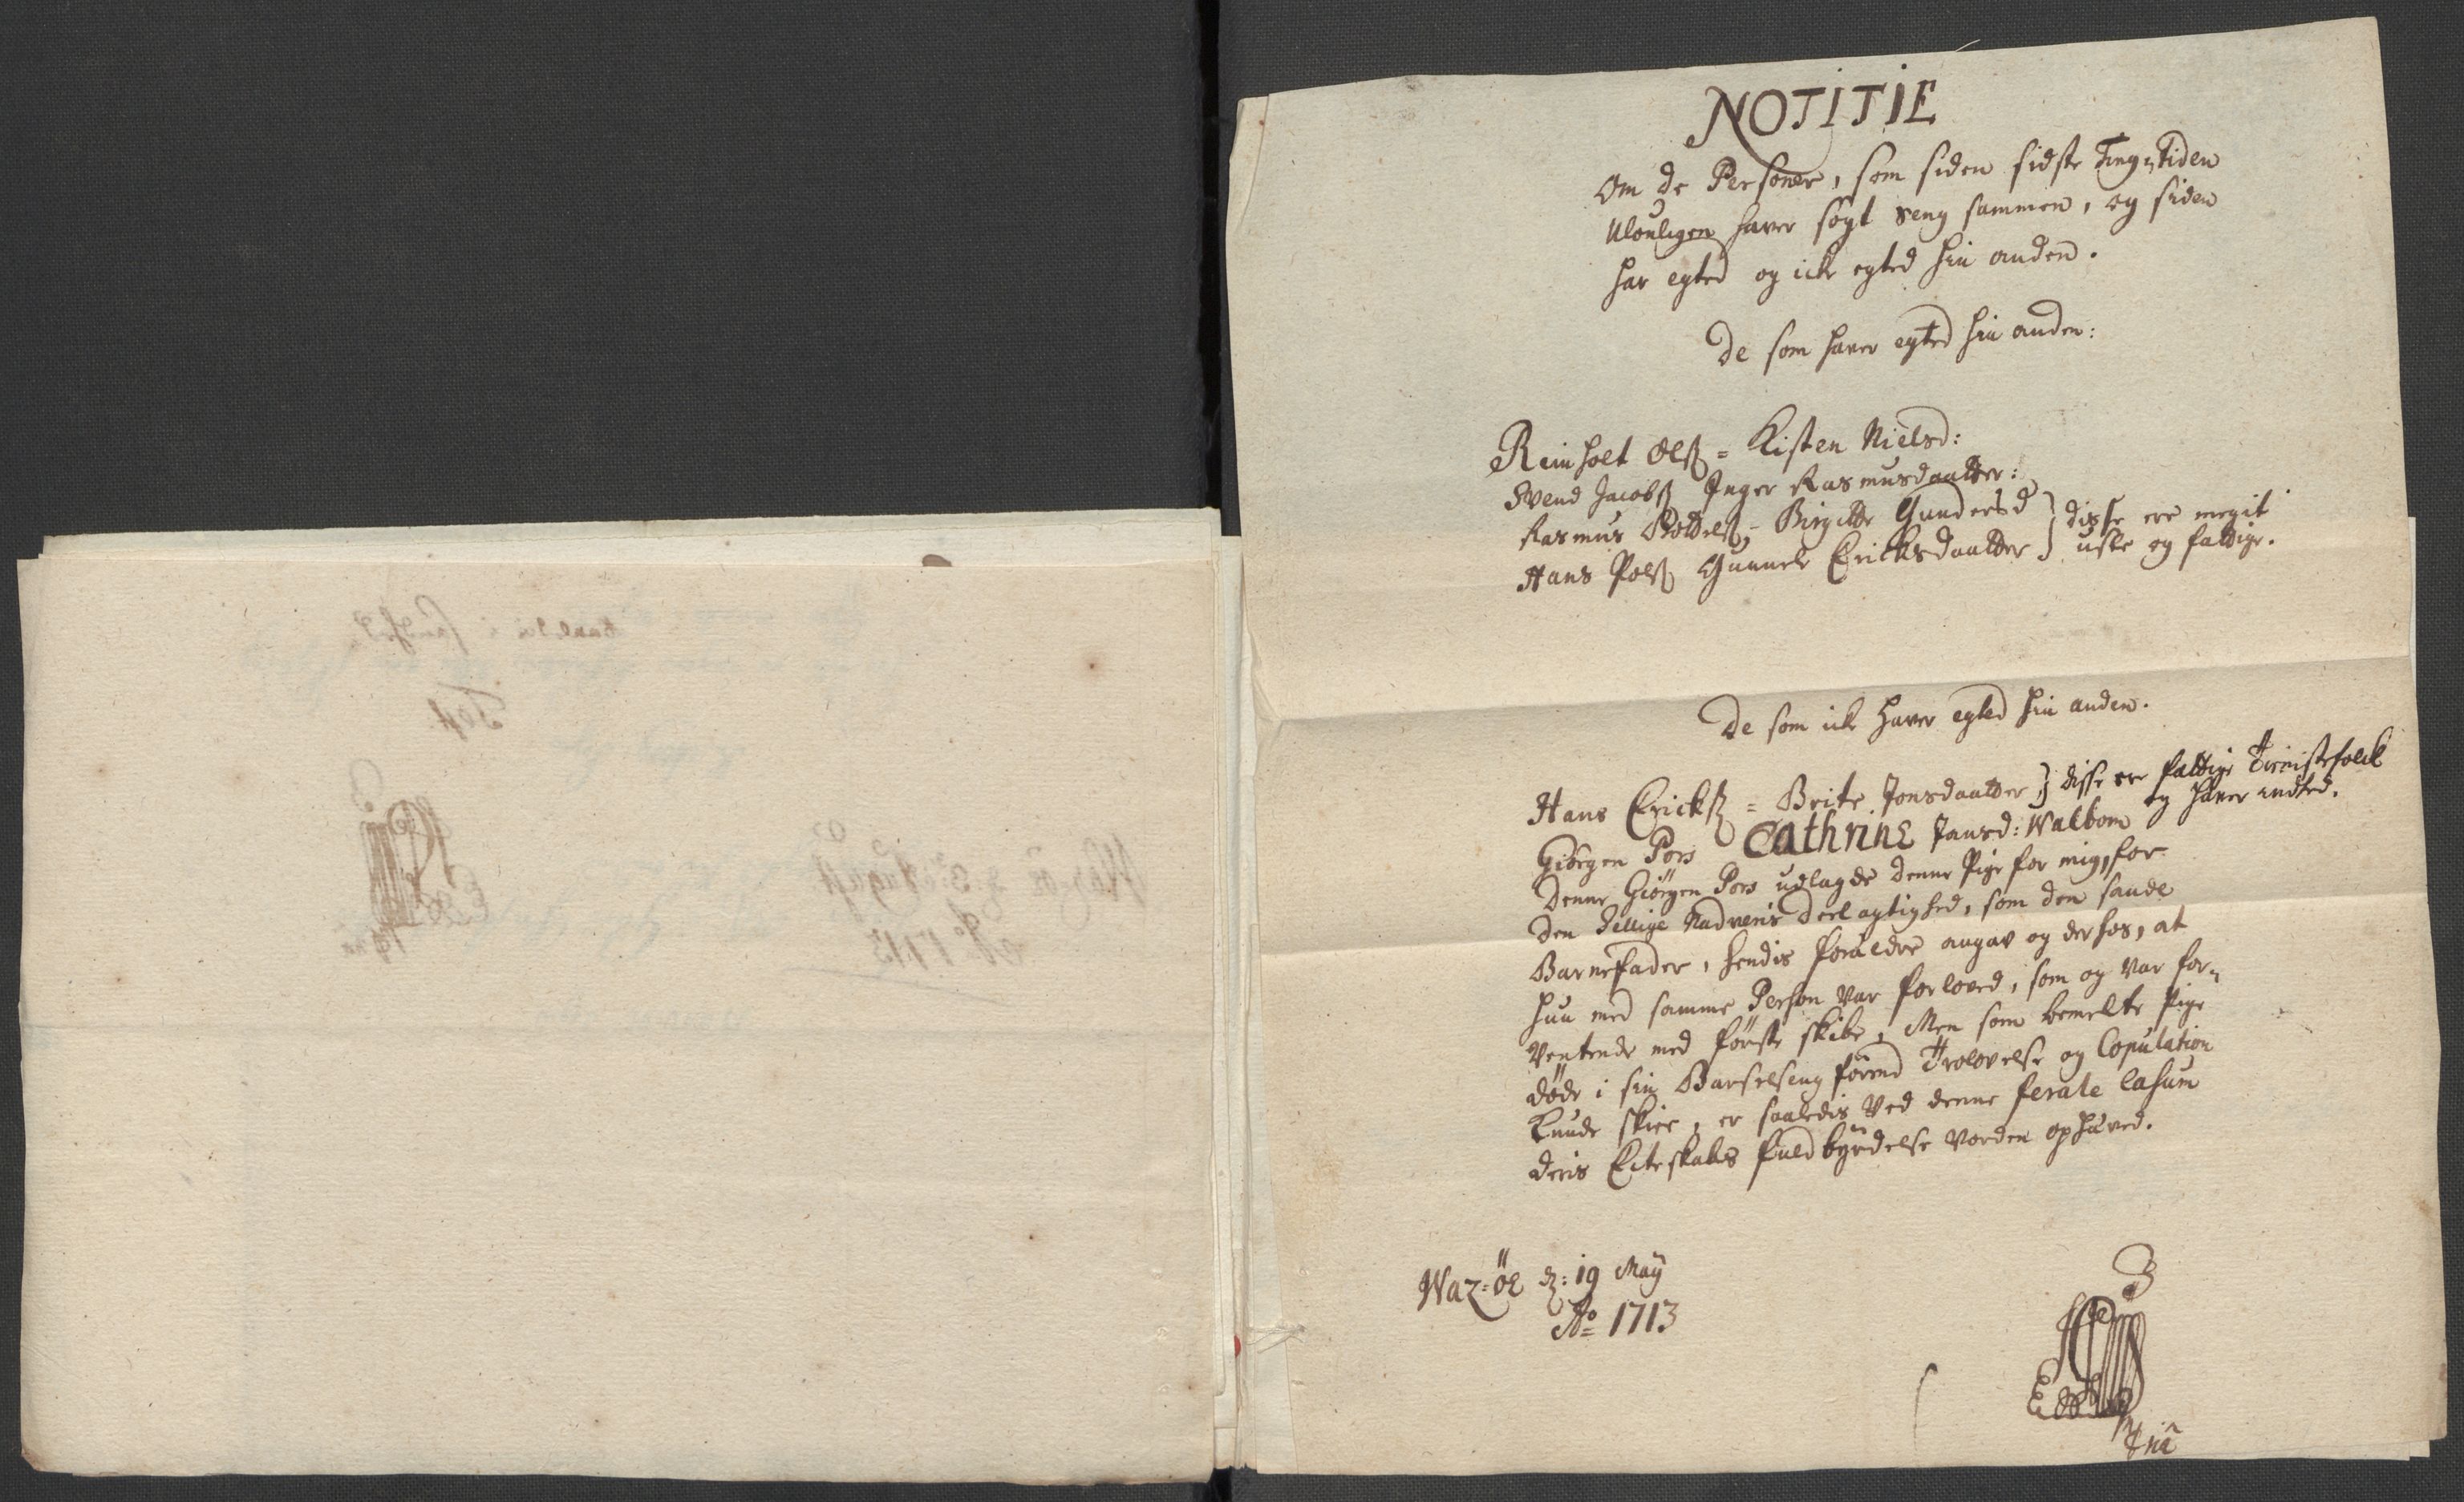 NOTITIE
Om de Personer, som siden sidste Ting-Tiden
Ulouligen haver søgt seng sammen, og siden
har egted og icke egted hin anden.
De som haver egted hin anden:
Reinholt Olß = Kisten Nielsd:
Svend Jacobß Inger Rasmusdaatter:
Rasmus Bottelß, Birgitte Gundersd } disse ere megit
Hans Polß Gunnele Ericksdaatter } usle og fattige.
De som icke haver egted hin anden.
Hans Erickß = Brite Jonsdaatter } disse ere fattige Tienistefolck
og haver indted.
Giörgen Pors Cathrine Jansd: Walbom
Denne Giörgen Pors udlagde denne Pige for mig, for
den hellige Nadveris deelagtighed, som den sande
Barnefader, hendis foräldre angav og derhos, at
hun med samme Person var forloved, som og var for-
ventende med förste skibe, Men som bemelte Pige
döde i sin Barselseng förend Trolovelse og Copulation
kunde skiee, er saaledis ved denne ferale Casum
deris Ecteskabs fuldbyrdelse vorden ophäved.
Waz-öe d: 19 Maÿ
Ao 1713